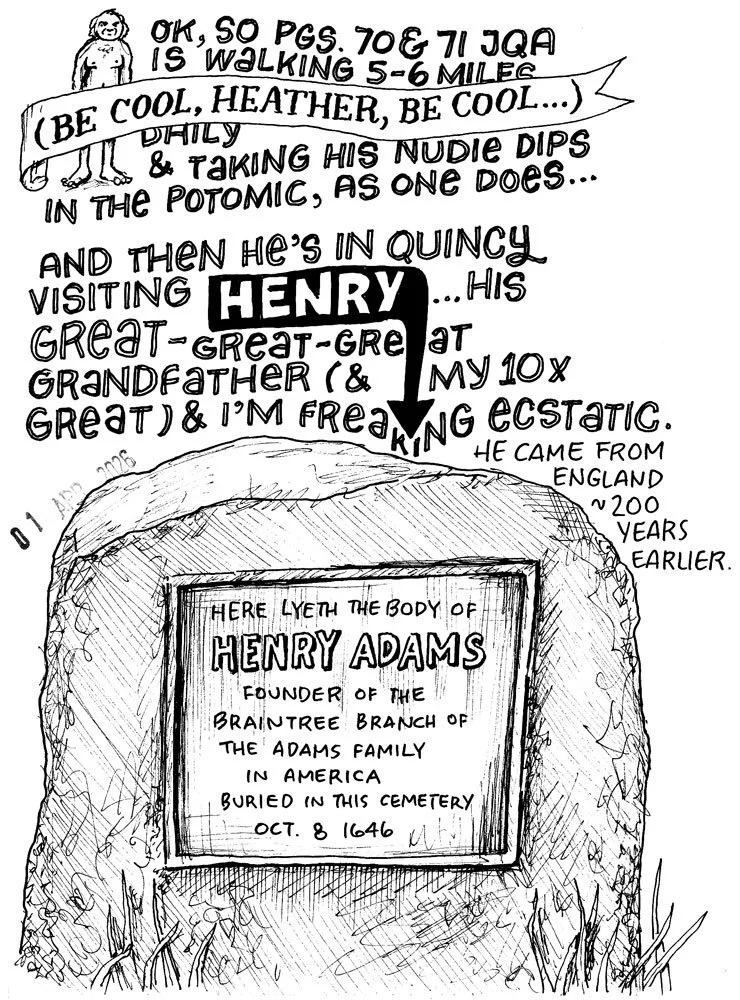 OK, SO PGS. 70 & 71 JQA
IS WALKING 5-6 MILES
(BE COOL, HEATHER, BE COOL...)
DAILY
& TAKING HIS NUDIE DIPS
IN THE POTOMIC, AS ONE DOES...
AND THEN HE'S IN QUINCY
VISITING HENRY ...HIS
GREAT-GREAT-GREAT
GRANDFATHER (& MY 10X
GREAT) & I'M FREAKING ECSTATIC.
HE CAME FROM
ENGLAND
~200
YEARS
EARLIER.
01 APR 2026
HERE LYETH THE BODY OF
HENRY ADAMS
FOUNDER OF THE
BRAINTREE BRANCH OF
THE ADAMS FAMILY
IN AMERICA
BURIED IN THIS CEMETERY
OCT. 8 1646